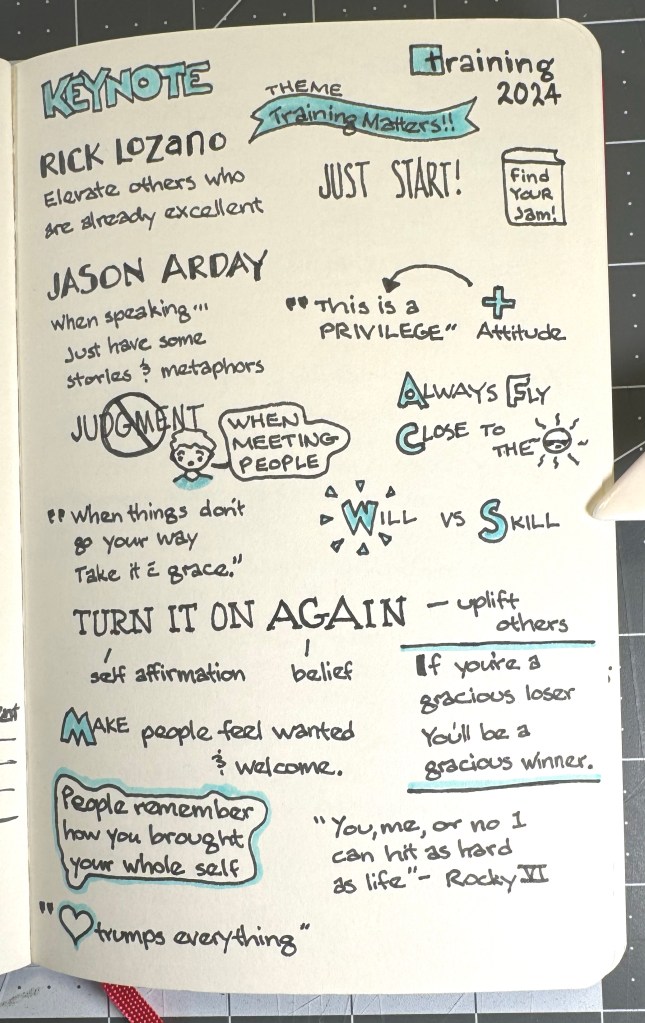 KEYNOTE
training
2024
THEME
Training Matters!!
RICK LOZANO
Elevate others who
are already excellent
JUST START!
Find
YOUR
Jam!
JASON ARDAY
When speaking...
Just have some
stories & metaphors
"This is a
PRIVILEGE"
+
Attitude
JUDGMENT
WHEN
MEETING
PEOPLE
ALWAYS FLY
CLOSE TO
THE
"When things don't
go your way
Take it & grace."
WILL VS SKILL
TURN IT ON AGAIN — uplift
others
self affirmation
belief
If you're a
gracious loser
You'll be a
gracious winner.
MAKE people feel wanted
& welcome.
People remember
how you brought
your whole self
"You, me, or no 1
can hit as hard
as life" - Rocky VI
"♡ trumps everything"